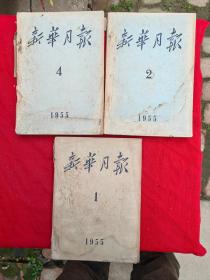 新华月报
4
1955
新华月报
2
1955
新华月报
1
1955